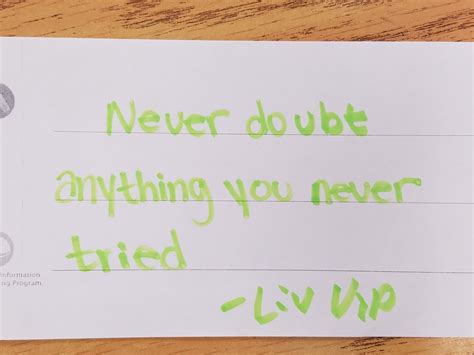 Never doubt
anything you never
tried
-Liv Vip
nformation
ng Program.